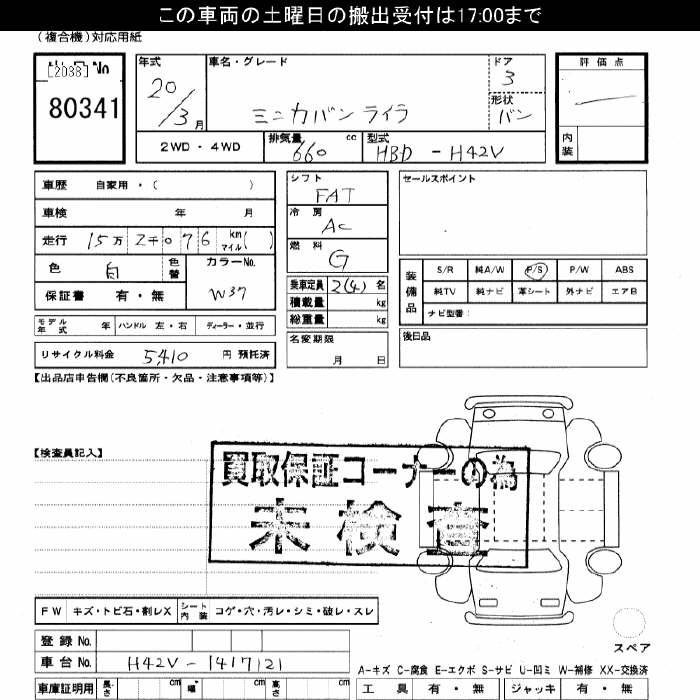 この車両の土曜日の搬出受付は17:00まで
(複合機)対応用紙
[2038] No
80341
年式 20/3月
車名・グレード ミニカバン ライラ
ドア 3
形状 バン
評価点
内装
2WD・4WD
排気量 660 cc
型式 HBD - H42V
車歴 自家用・( )
車検 年 月
走行 15万2千076 km マイル( )
色 白 色替
カラーNo. W37
保証書 有・無
モデル年式 年 ハンドル 左・右 ディーラー・並行
リサイクル料金 5,410 円 預託済
シフト FAT
冷房 AC
燃料 G
乗車定員 2(4) 名
積載量 kg
総重量 kg
名変期限 月 日
セールスポイント
装備品
S/R 純A/W P/S P/W ABS
純TV 純ナビ 革シート 外ナビ エアB
ナビ型番:
後日品
【出品店申告欄(不良箇所・欠品・注意事項等)】
【検査員記入】
買取保証コーナーの為
未検査
FW キズ・トビ石・割レX シート内装 コゲ・穴・汚レ・シミ・破レ・スレ
スペア
登録No.
車台No. H42V-1417121
A-キズ C-腐食 E-エクボ S-サビ U-凹ミ W-補修 XX-交換済
車庫証明用 長さ cm 幅 cm 高さ cm
工具 有・無 ジャッキ 有・無